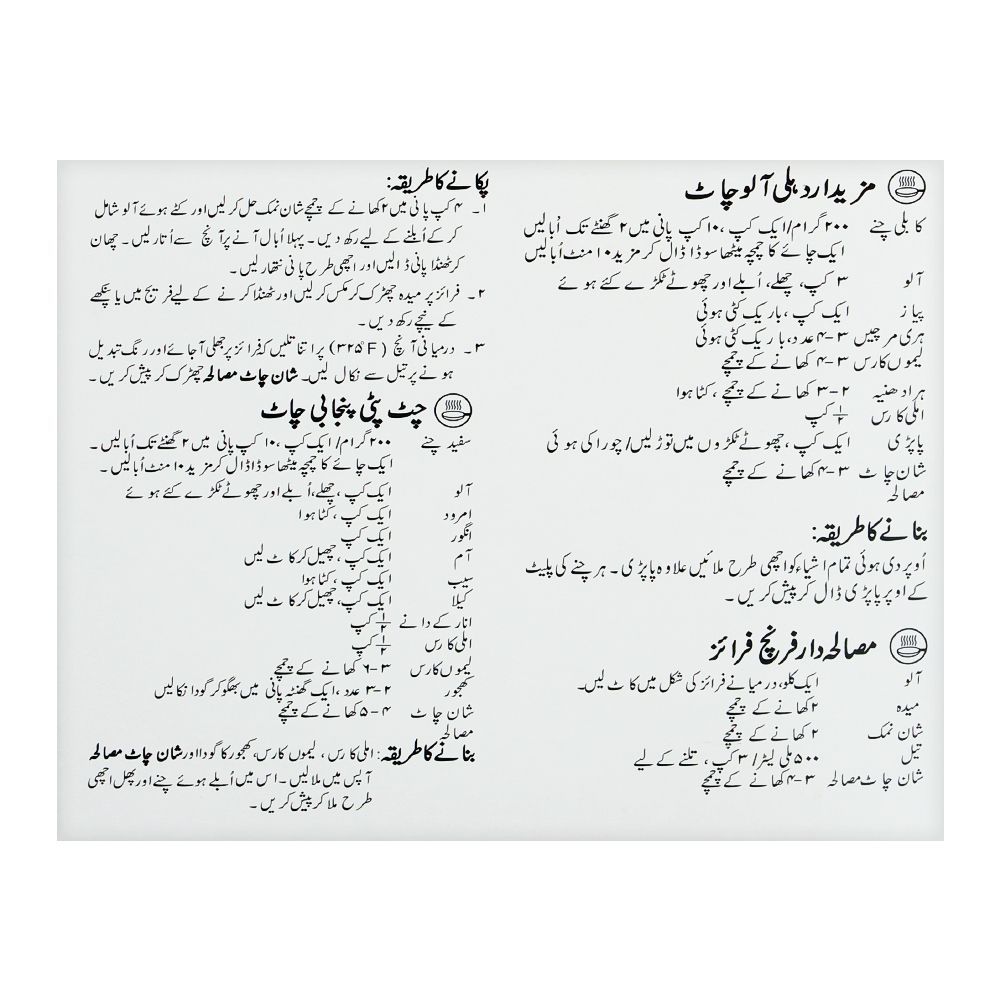 مزیدار دہلی آلو چاٹ
کابلی چنے ۲۰۰ گرام/ایک کپ، ۱۰ کپ پانی میں ۲ گھنٹے تک اُبالیں
ایک چائے کا چمچہ میٹھا سوڈا ڈال کر مزید ۱۰ منٹ اُبالیں
آلو ۳ کپ، چھلے، اُبلے اور چھوٹے ٹکڑے کئے ہوئے
پیاز ایک کپ، باریک کٹی ہوئی
ہری مرچیں ۳-۴ عدد، باریک کٹی ہوئی
لیموں کا رس ۳-۴ کھانے کے چمچے
ہرا دھنیہ ۲-۳ کھانے کے چمچے، کٹا ہوا
املی کا رس ۱/۲ کپ
پاپڑی ایک کپ، چھوٹے ٹکڑوں میں توڑ لیں/چورا کی ہوئی
شان چاٹ ۳-۴ کھانے کے چمچے
مصالحہ
بنانے کا طریقہ:
اُوپر دی ہوئی تمام اشیاء کو اچھی طرح ملائیں علاوہ پاپڑی۔ ہر چنے کی پلیٹ
کے اوپر پاپڑی ڈال کر پیش کریں۔
مصالحہ دار فرنچ فرائز
آلو ایک کلو، درمیانے فرائز کی شکل میں کاٹ لیں۔
میدہ ۲ کھانے کے چمچے
شان نمک ۲ کھانے کے چمچے
تیل ۵۰۰ ملی لیٹر/۳ کپ، تلنے کے لیے
شان چاٹ مصالحہ ۳-۴ کھانے کے چمچے
پکانے کا طریقہ:
۱۔ ۴ کپ پانی میں ۲ کھانے کے چمچے شان نمک حل کر لیں اور کٹے ہوئے آلو شامل
کر کے اُبلنے کے لیے رکھ دیں۔ پہلا اُبال آنے پر آنچ سے اُتار لیں۔ چھان
کر ٹھنڈا پانی ڈالیں اور اچھی طرح پانی نتھار لیں۔
۲۔ فرائز پر میدہ چھڑک کر مکس کر لیں اور ٹھنڈا کرنے کے لیے فریج میں یا پنکھے
کے نیچے رکھ دیں۔
۳۔ درمیانی آنچ (۳۲۵°F) پر اتنا تلیں کہ فرائز پر جھلی آجائے اور رنگ تبدیل
ہونے پر تیل سے نکال لیں۔ شان چاٹ مصالحہ چھڑک کر پیش کریں۔
چٹ پٹی پنجابی چاٹ
سفید چنے ۲۰۰ گرام/ایک کپ، ۱۰ کپ پانی میں ۲ گھنٹے تک اُبالیں۔
ایک چائے کا چمچہ میٹھا سوڈا ڈال کر مزید ۱۰ منٹ اُبالیں۔
آلو ایک کپ، چھلے، اُبلے اور چھوٹے ٹکڑے کئے ہوئے
امرود ایک کپ، کٹا ہوا
انگور ایک کپ
آم ایک کپ، چھیل کر کاٹ لیں
سیب ایک کپ، کٹا ہوا
کیلا ایک کپ، چھیل کر کاٹ لیں
انار کے دانے ۱/۲ کپ
املی کا رس ۱/۲ کپ
لیموں کا رس ۳-۶ کھانے کے چمچے
کھجور ۲-۳ عدد، ایک گھنٹہ پانی میں بھگو کر گودا نکالیں
شان چاٹ ۴-۵ کھانے کے چمچے
مصالحہ
بنانے کا طریقہ: املی کا رس، لیموں کا رس، کھجور کا گودا اور شان چاٹ مصالحہ
آپس میں ملالیں۔ اس میں اُبلے ہوئے چنے اور پھل اچھی
طرح ملا کر پیش کریں۔